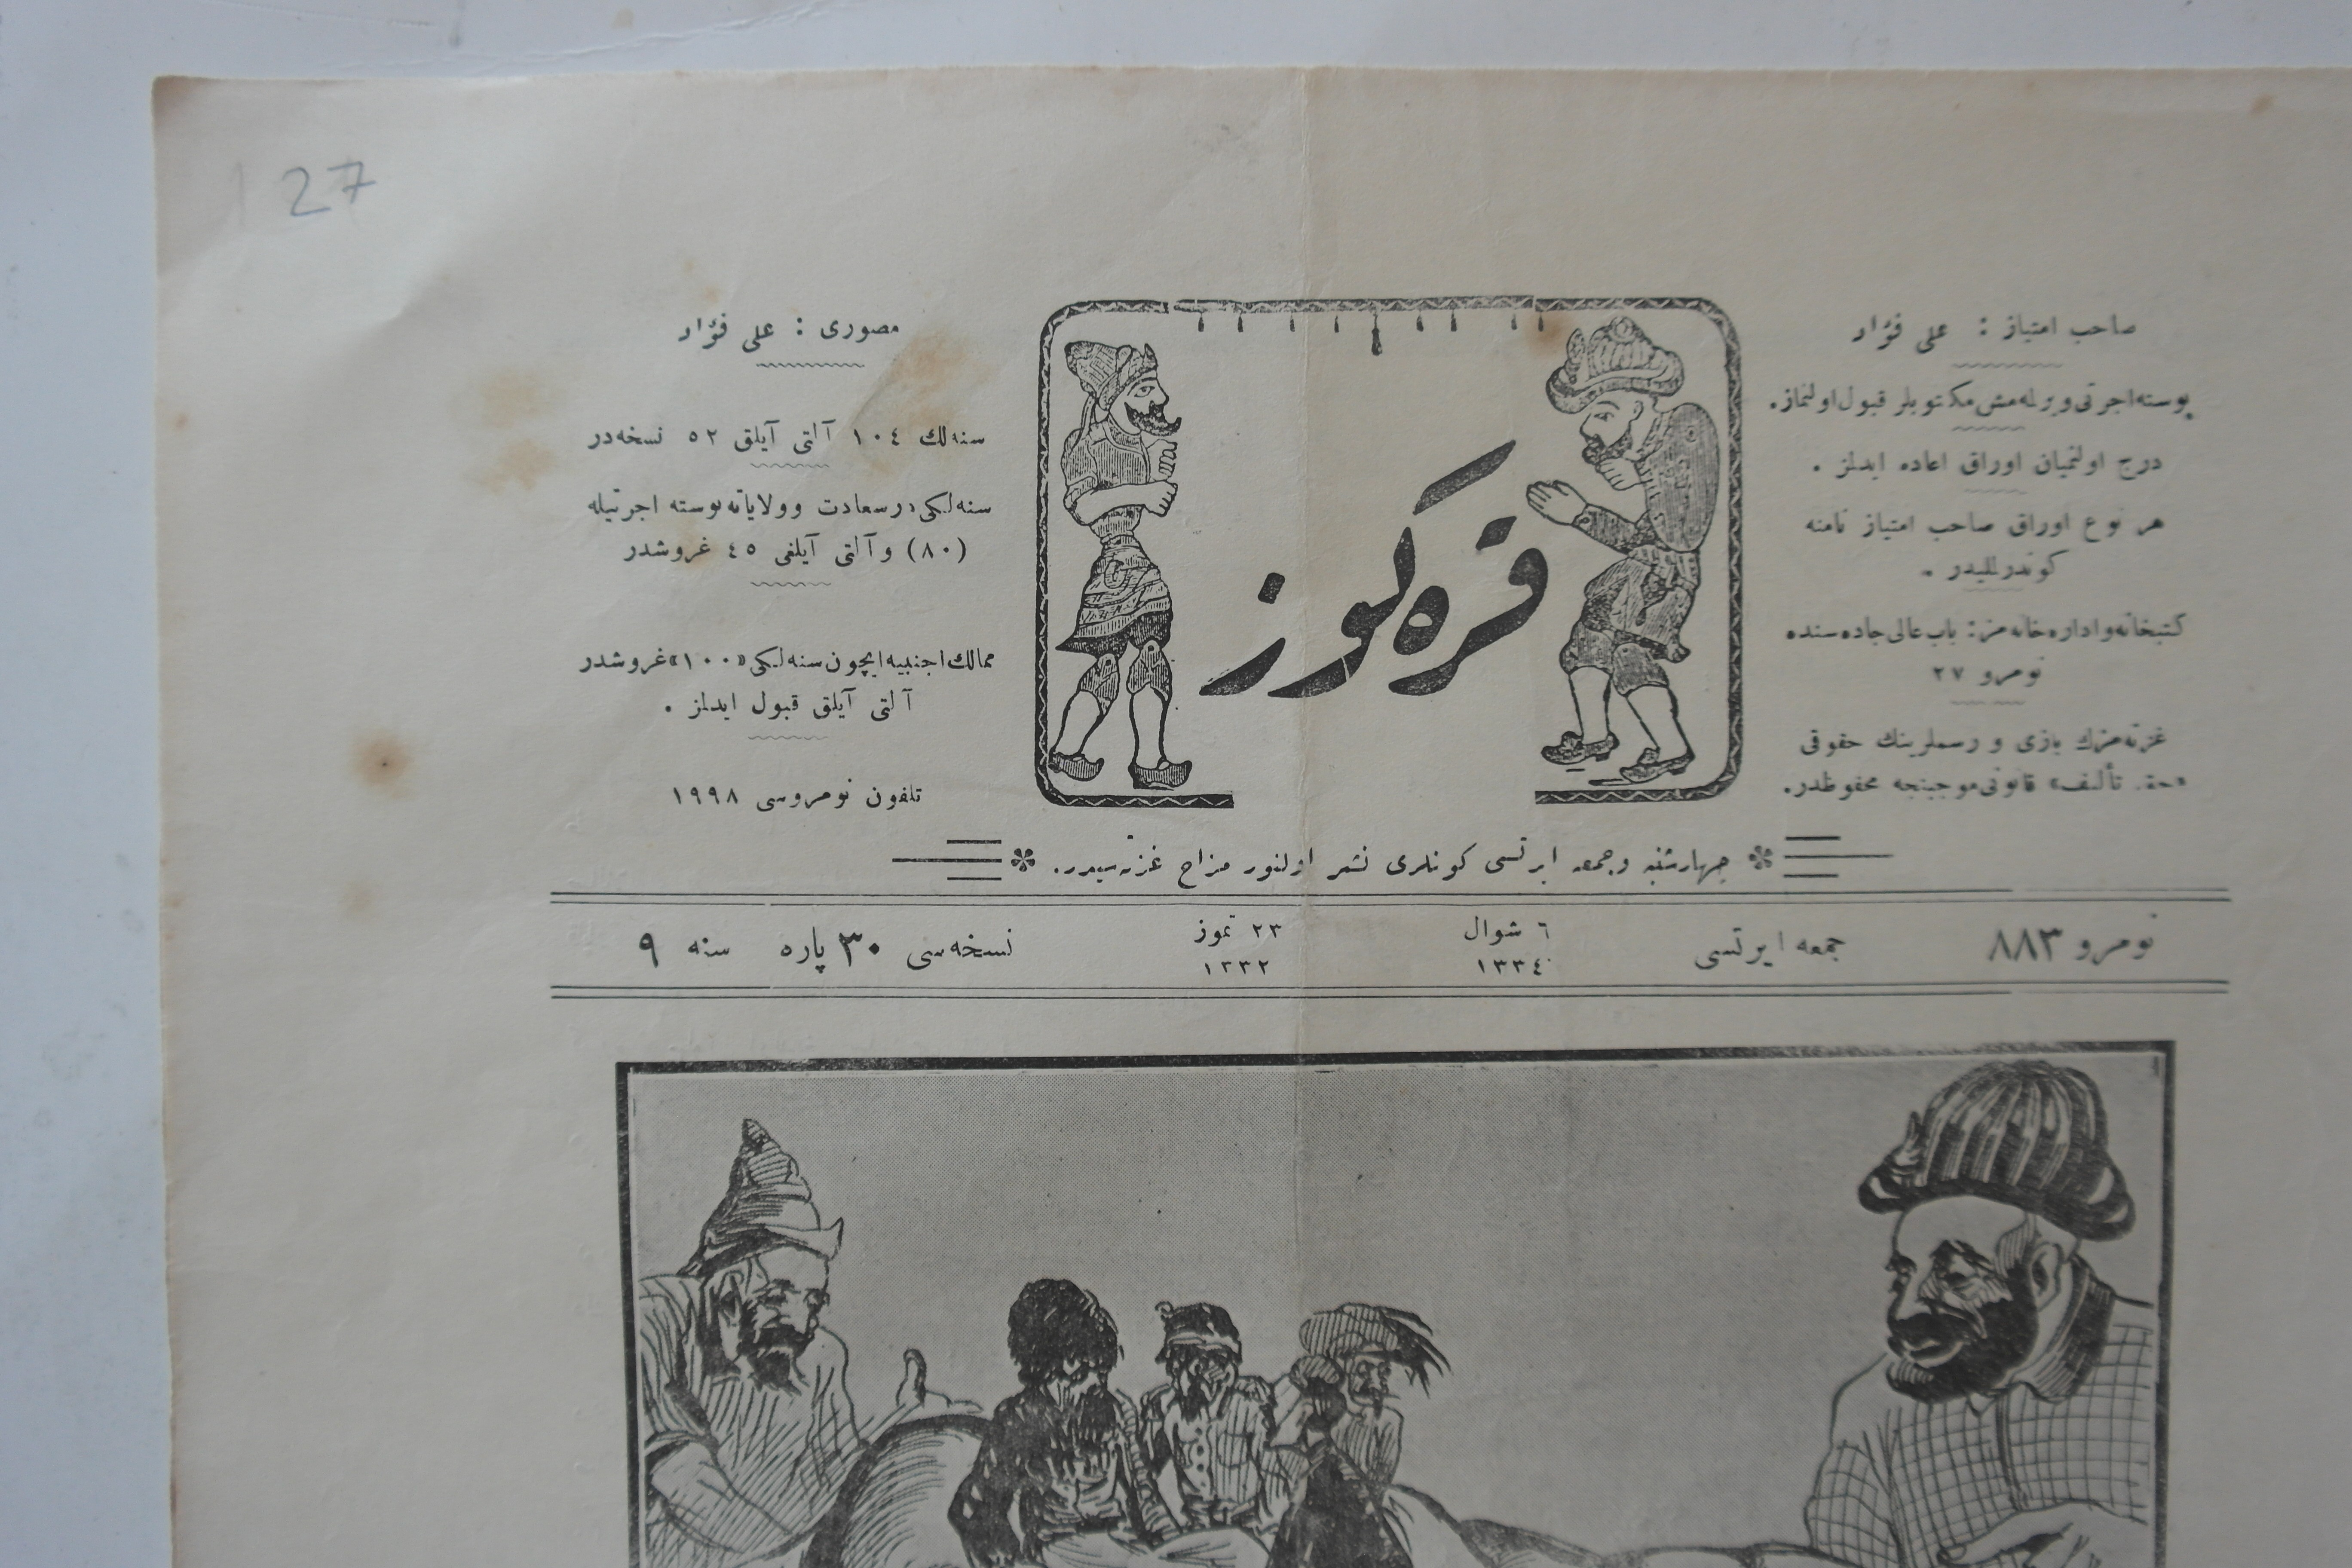 127
صاحب امتياز : على فؤاد
پوسته اجرتى ويرلمه مش مكتوبلر قبول اولنماز.
درج اولنميان اوراق اعاده ايدلز .
هر نوع اوراق صاحب امتياز نامنه
كوندرلليدر .
كتبخانه و اداره خانه مز : باب عالى جاده سنده
نومرو ٢٧
غزته مزك يازى و رسملرينك حقوقى
«حق تأليف» قانونى موجبنجه محفوظدر.
قره كوز
مصورى : على فؤاد
سنه لك ١٠٤ آلتى آيلق ٥٢ نسخه در
سنه لكى درسعادت وولاياته پوسته اجرتيله
(٨٠) و آلتى آيلغى ٤٥ غروشدر
ممالك اجنبيه ايچون سنه لكى «١٠٠» غروشدر
آلتى آيلق قبول ايدلز .
تلفون نومروسى ١٩٩٨
چهارشنبه وجمعه ايرتسى كونلرى نشر اولنور مزاح غزته سيدر.
نومرو ٨٨٣ جمعه ايرتسى ٦ شوال ١٣٣٤ ٢٣ تموز ١٣٣٢ نسخه سى ٣٠ پاره سنه ٩